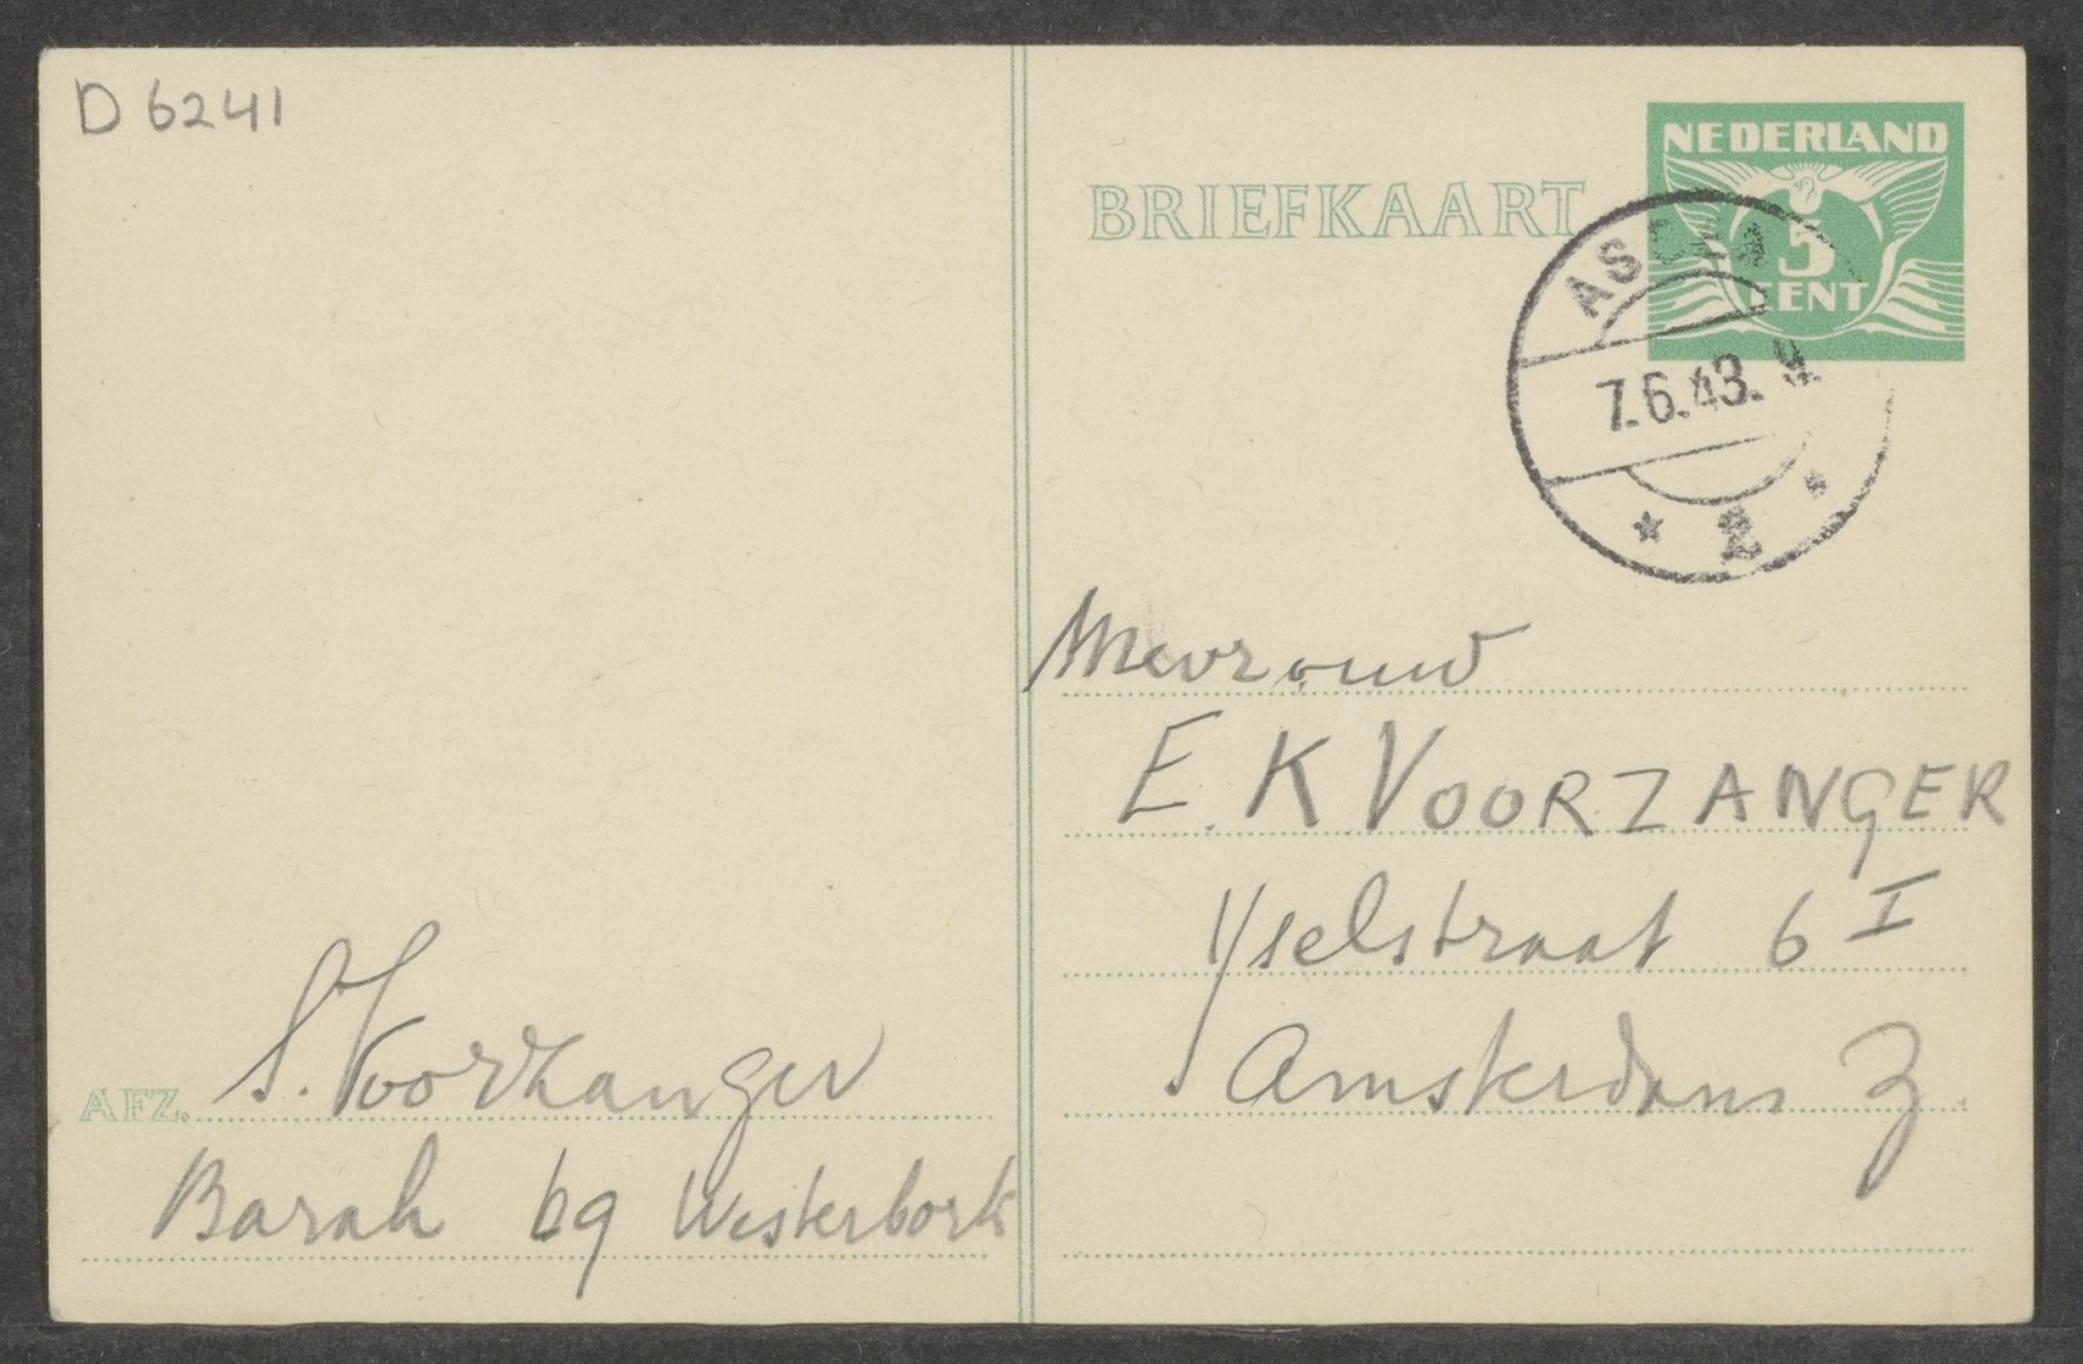 D 6241
NEDERLAND
5
CENT
BRIEFKAART
ASSEN
7.6.43. 9.
* 2 *
Mevrouw
E. K VOORZANGER
IJselstraat 6 I
Amsterdam Z.
AFZ. S. Voorzanger
Barak 69 Westerbork